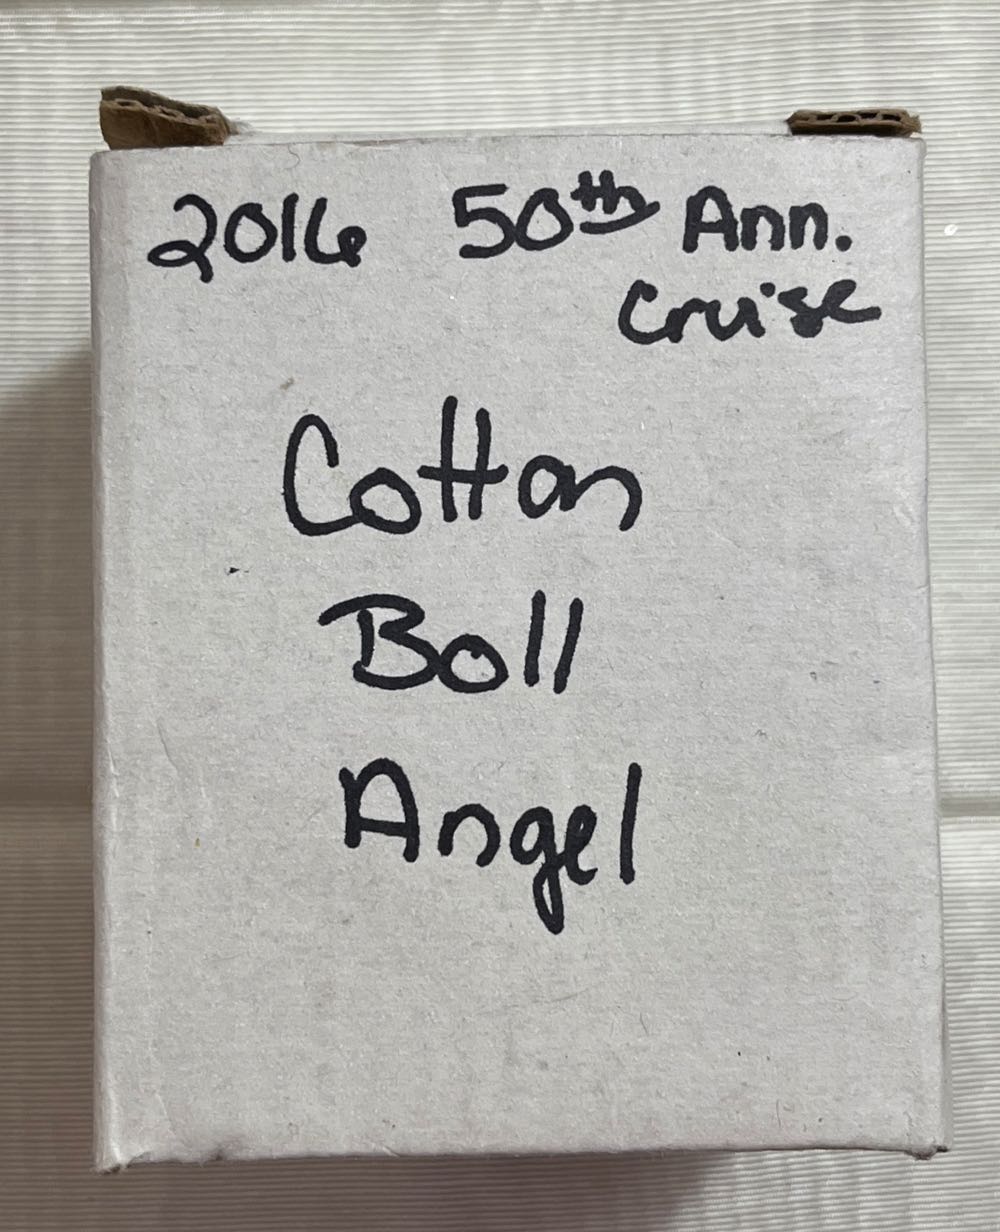 2016 50th Ann.
Cruise
Cotton
Boll
Angel